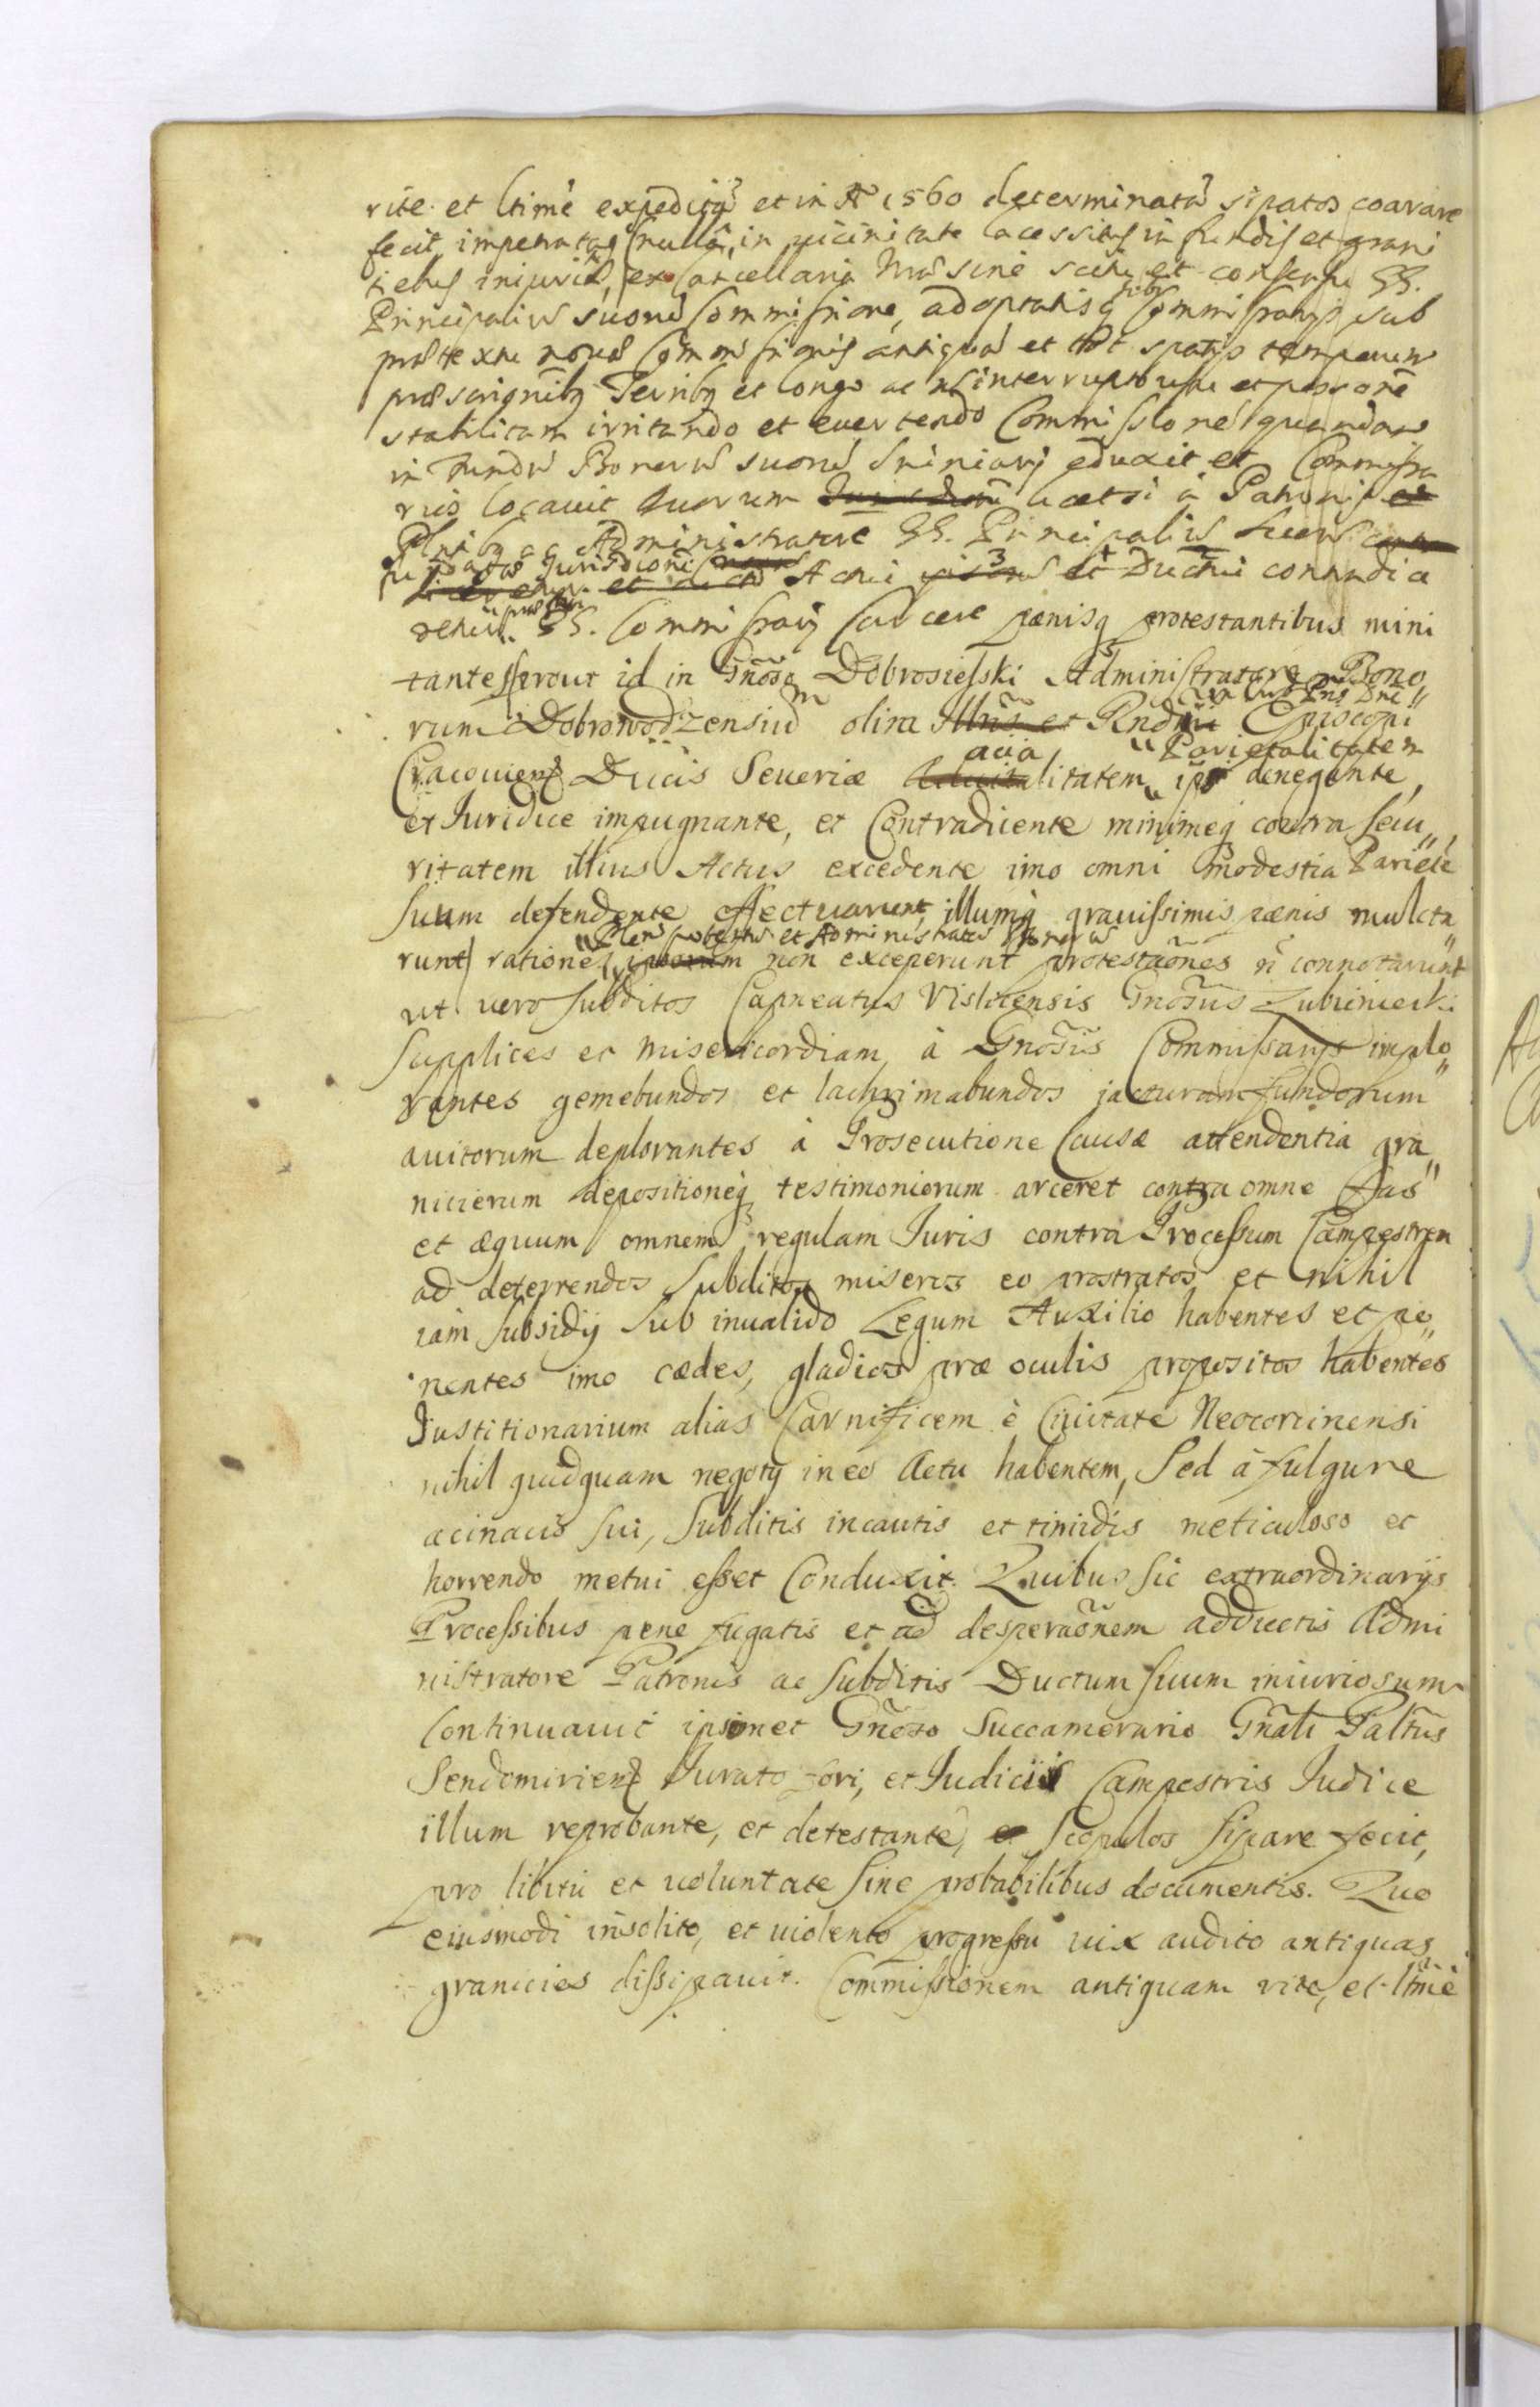 rite et ltime expeditã et in Aº 1560 determinatã sipatos coarare
fecit impetrataq nullâ in vicinitate lacessitus in fundis et grani
ciebus iniuriâ, ex Cancellaria sine scitu et consensu SS.
Principaliũ suorũ Commissione, adoptatisq sibi Commissarijs sub
prætextu novæ Commissionis antiquã et tot spatijs temporum
præscriptionibq et longo ac interrupto usu et possessione
stabilitam irritando et evertendo Commissionẽ quandam
in fundũ Bonorũ suorũ eduxit et Commissa
rios locavit Quorum licet si à Patronis et
ac Administratore SS. Principaliũ suorũ
fundatã Jurisdictionẽ Actui et Ductui contradice
retur SS. Commissarij Carcere pænisq protestantibus mini
tantes prout id in Gnoso Dobrosiesski Administratore Bono
rum Dobrowodzensiũ olim Illmi et Rndmi Episcopi
Cracouiens Ducis Seueriæ acialitatem „Parietalitatem ipsi denegante,
et Iuridice impugnante, et Contradicente minimeq contra secu„
ritatem illius Actus excedente imo omni modestia Parietẽ
suum defendente effectuarunt, illumq grauissimis pænis mulcta„
runt rationes „Plenipotentis et Administratoris Bonorũ ipsorum non exceperunt protestaões ñ connotarunt
ut vero subditos Capneatus Vislicensis Gnosus
supplices et misericordiam à Gnosis Commissarijs implo„
rantes gemebundos et lachrimabundos jacturam fundorum
auitorum deplorantes à Prosecutione Causæ attendentia gra„
nicierum depositioneq testimoniorum arceret contra omne fas
et æquum omnem regulam Iuris contra Processum Campestrem
ad deterrendos subditos miseros eo prostratos et nihil
iam subsidij sub inualido Legum Auxilio habentes et po„
nentes imo cædes, gladios præ oculis propositos habentes
Iustitionarium alias Carnificem è Ciuitate Neocorcinensi
nihil quidquam negotij in eo Actu habentem, Sed à fulgure
acinacis sui, subditis incautis et timidis meticuloso et
horrendo metui esset Conduxit. Quibus sic extraordinarijs
Processibus pene fugatis et ad desperaõnem adductis Admi
nistratore Patronis ac subditis Ductum suum iniuriosum
Continuauit ipsomet Gnoso Succamerario Gnali Paltus
Sendomiriens Iurato fori, et Iudicii Campestris Iudice
illum reprobante, et detestante, et Scopulos sipare fecit,
pro libitu et voluntate sine probabilibus documentis. Quo
eiusmodi insolito, et violento progressu vix audito antiquas
granicies dissipauit. Commissionem antiquam rite, et ltime